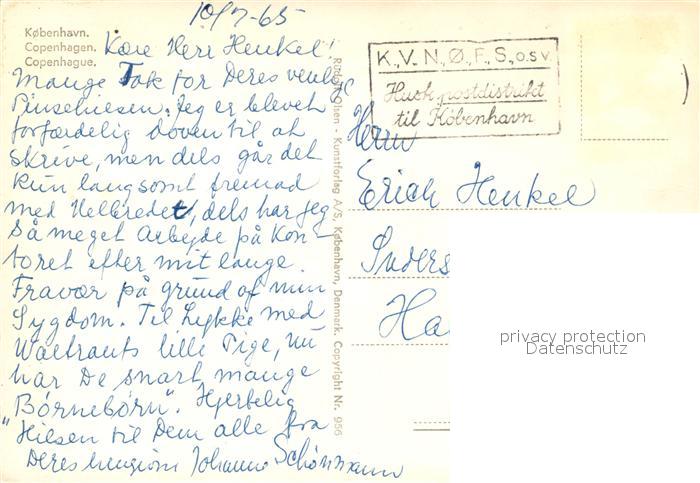 10/7-65
København.
Copenhagen.
Copenhague.
Kære Herr Henkel!
Mange Tak for Deres venlige
Pinsehilsen. Jeg er blevet
forfærdelig doven til at
skrive, men dels går det
kun langsomt fremad
med Helbredet, dels har jeg
så meget Arbejde på Kon-
toret efter mit lange
Fravær på grund af min
Sygdom. Til Lykke med
Waltrauts lille Pige, nu
har De snart mange
"Børnebørn". Hjertelig
Hilsen til Dem alle fra
Deres hengivne Johanne Schönmann
Rudolf Olsen - Kunstforlag A/S, København, Denmark. Copyright Nr. 956
K., V., N., Ø., F., S., o.s.v.
Husk postdistrikt
til København
Herrn
Erich Henkel
Suders
Ha
privacy protection
Datenschutz